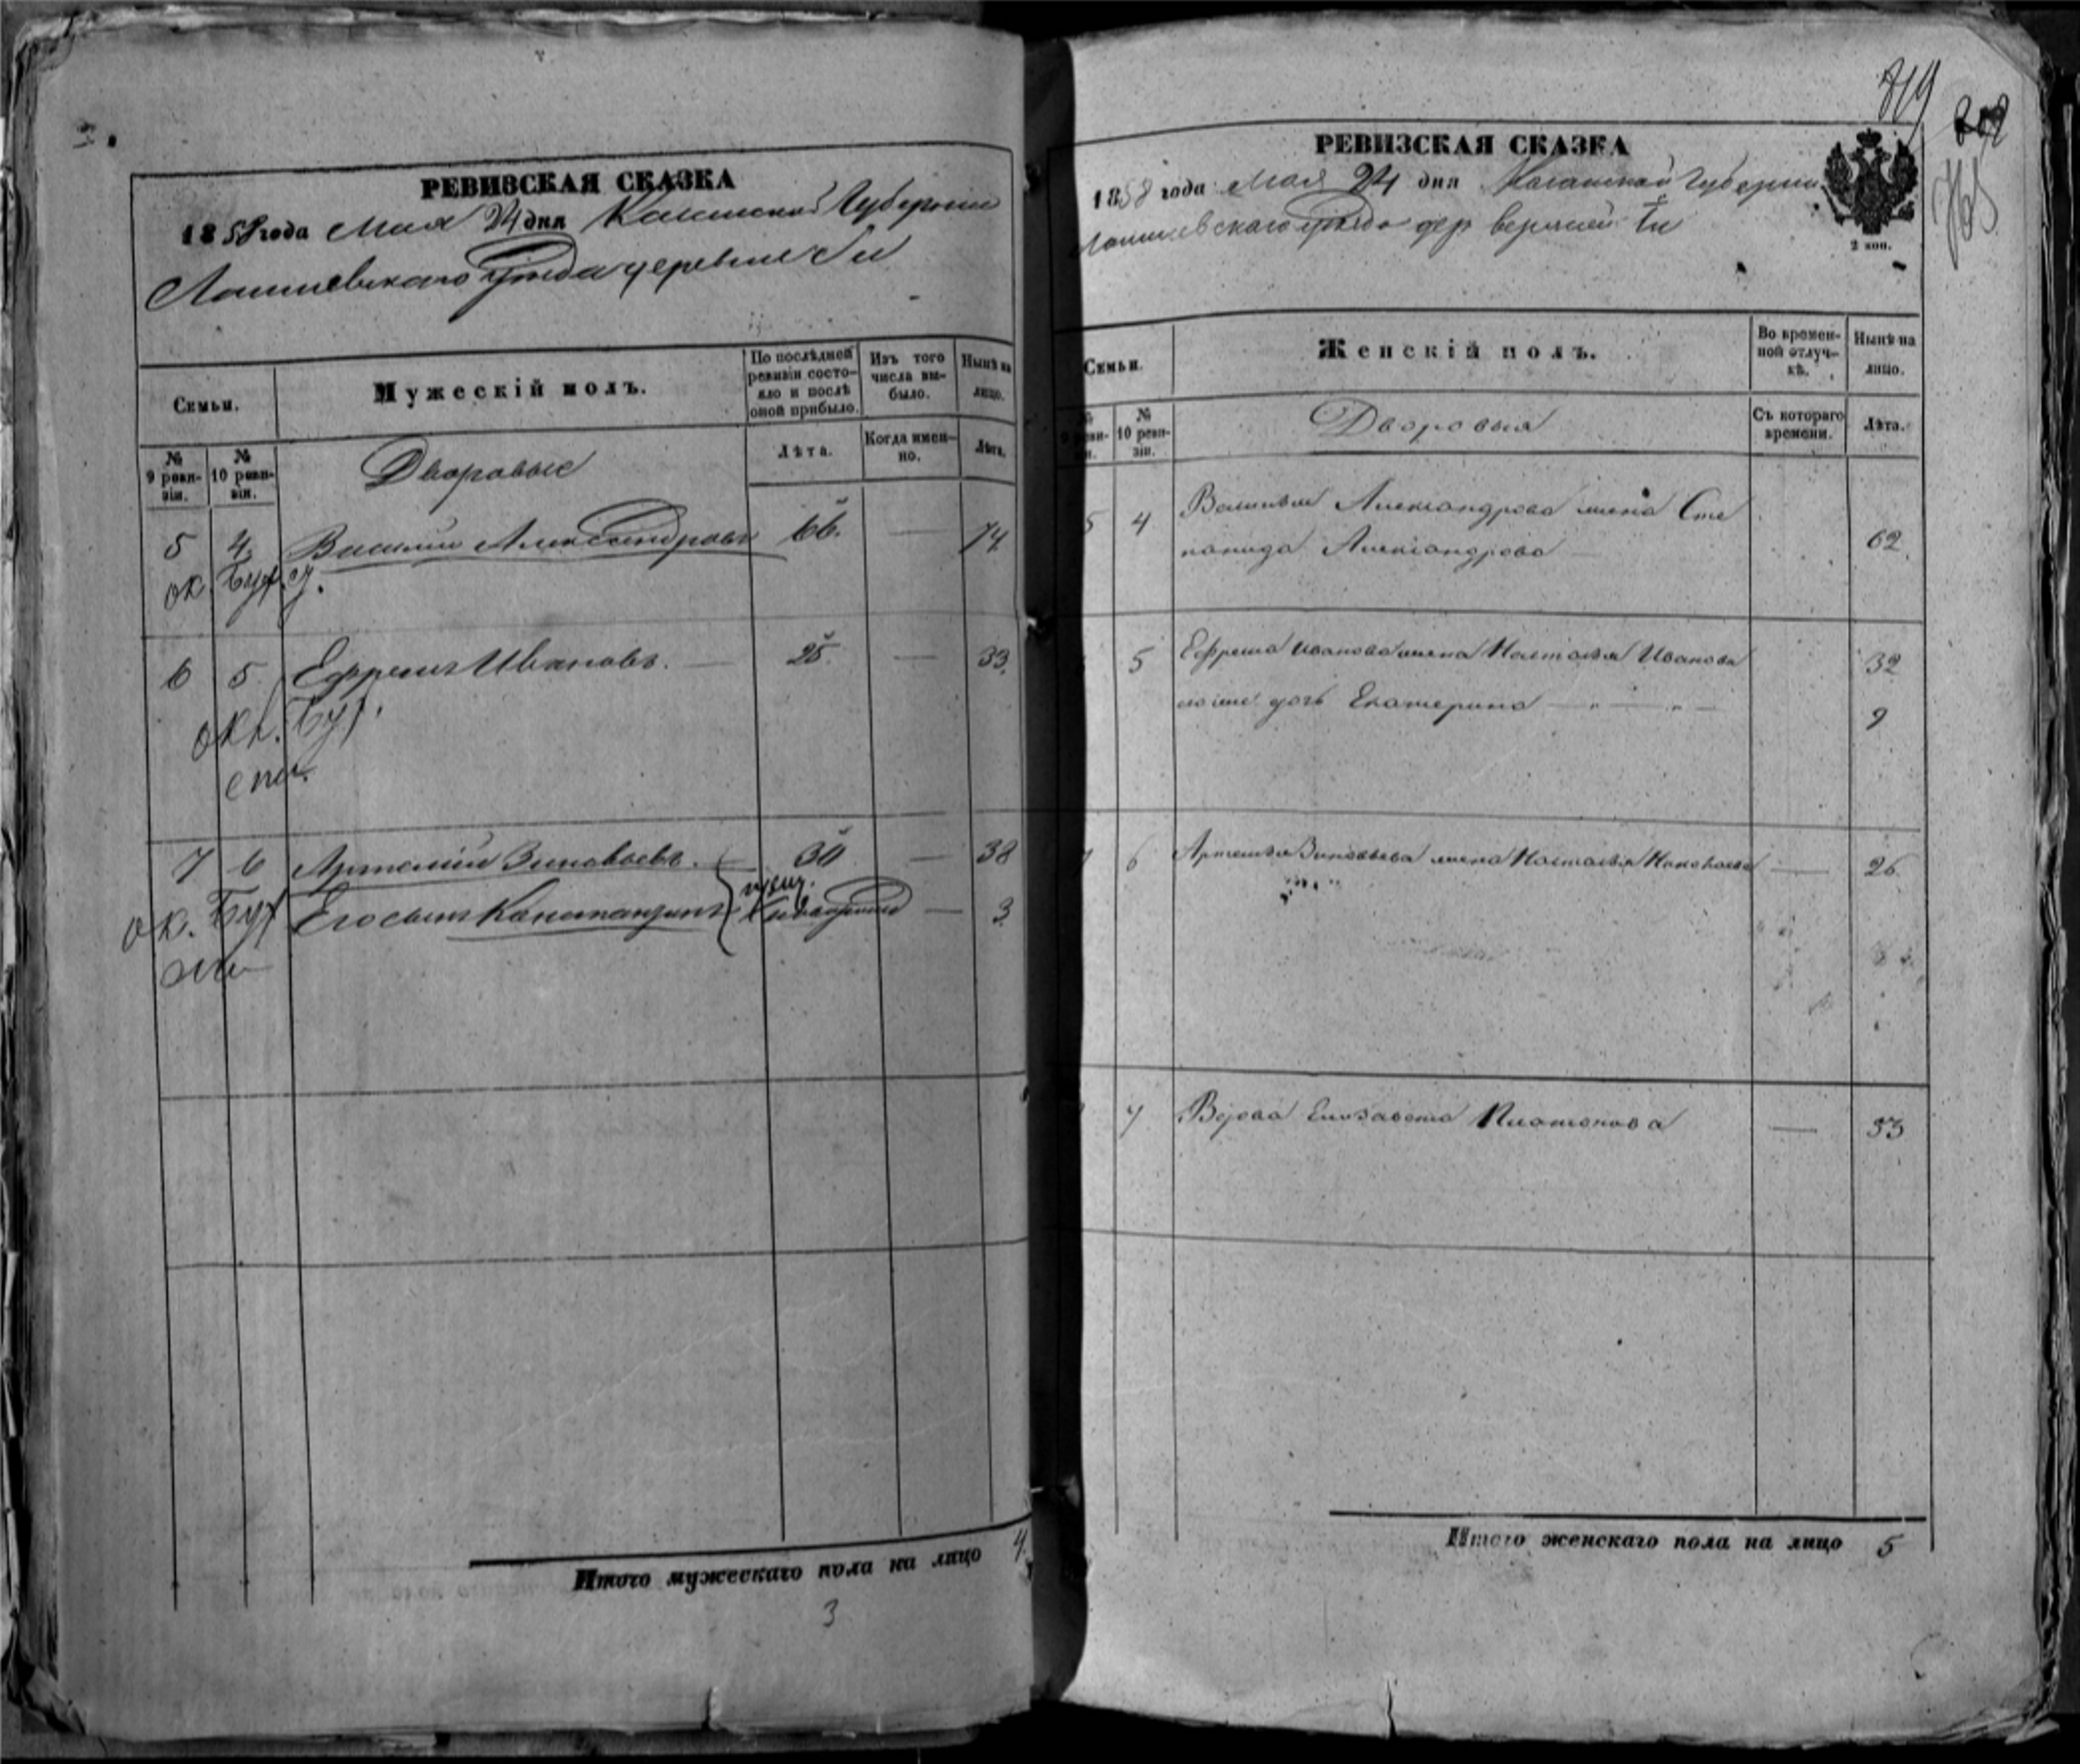 РЕВИЗСКАЯ СКАЗКА
1858 года Мая 24 дня Казанской Губернии
Лаишевскаго Уезда деревне
Семьи.
Мужескій полъ.
По послѣдней ревизіи состояло и послѣ оной прибыло.
Изъ того числа выбыло.
Нынѣ на лицо.
№ 9 ревизіи.
№ 10 ревизіи.
Дворовые
Лѣта.
Когда именно.
Лѣта.
5 4 Василий Александровъ 66. — 74
6 5 Ефремъ Ивановъ. — 25 — 33.
7 6 Артемій Зиновьевъ. — 30 — 38
Его сынъ Константинъ — 3
Итого мужескаго пола на лицо 4
3
819
РЕВИЗСКАЯ СКАЗКА
1858 года Мая 24 дня Казанской Губернии
Лаишевскаго Уезда дер верхней
2 коп.
Семьи.
Женскій полъ.
Во временной отлучкѣ.
Нынѣ на лицо.
№ 10 ревизіи.
Дворовыя
Съ котораго времени.
Лѣта.
5 4 Василья Александрова жена Сте
панида Александрова — 62
5 Ефрема Иванова жена Настасья Иванова 32
дочь Екатерина 9
6 Артемья Зиновьева жена Настасья — 26
7 Вдова Елизавета Платонова — 33
Итого женскаго пола на лицо 5